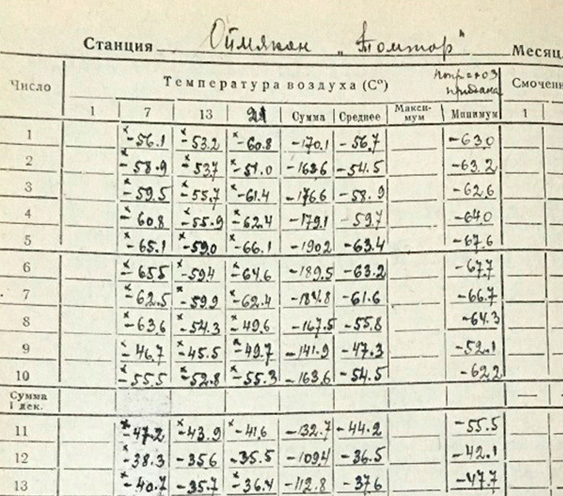 Станция Оймякон „Томтор" Месяц
Число Температура воздуха (С°) Смочен
1 7 13 21 Сумма Среднее Макси-мум Минимум 1
1 -56.1 -53.2 -60.8 -170.1 -56.7 -63.0
2 -58.9 -53.7 -51.0 -163.6 -54.5 -63.2
3 -59.5 -55.7 -61.4 -176.6 -58.9 -62.6
4 -60.8 -55.9 -62.4 -179.1 59.7 -64.0
5 -65.1 -59.0 -66.1 -190.2 -63.4 -67.6
6 -65.5 -59.4 -64.6 -189.5 -63.2 -67.7
7 -62.5 -59.9 -62.4 -184.8 -61.6 -66.7
8 -63.6 -54.3 -49.6 -167.5 -55.8 -64.3
9 -46.7 -45.5 -49.7 -141.9 -47.3 -52.1
10 -55.5 -52.8 -55.3 -163.6 -54.5 -62.2
Сумма
I дек.
11 -47.2 -43.9 -41.6 -132.7 -44.2 -55.5
12 -38.3 -35.6 -35.5 -109.4 -36.5 -42.1
13 -40.7 -35.7 -36.4 -112.8 -37.6 -47.7